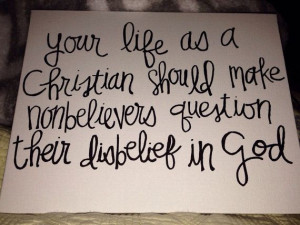 your life as a
Christian should make
nonbelievers question
their disbelief in God